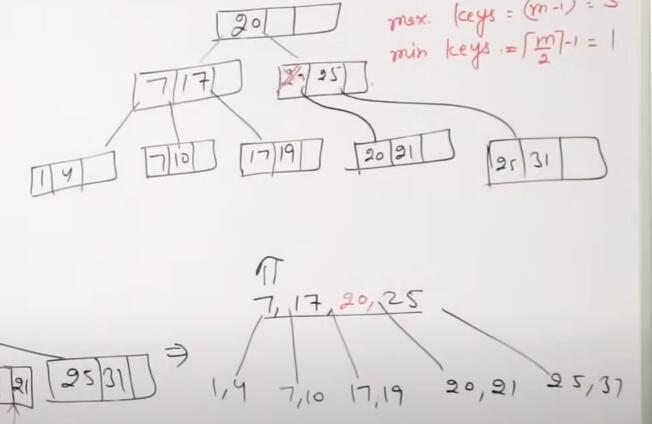 20
max. keys = (m-1) = 3
min keys = ⌈m/2⌉-1 = 1
7 17
25
1 4
7 10
17 19
20 21
25 31
π
7, 17, 20, 25
21
25 31 ⇒
1,4 7,10 17,19 20,21 25,31